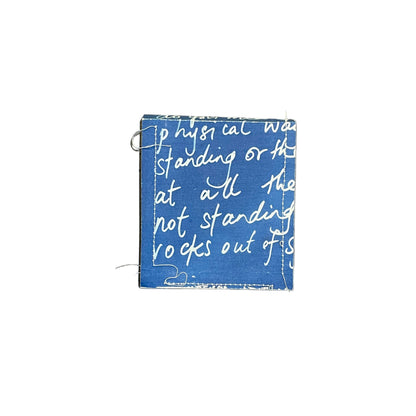 physical wa
standing or th
at all the
not standing
rocks out of s